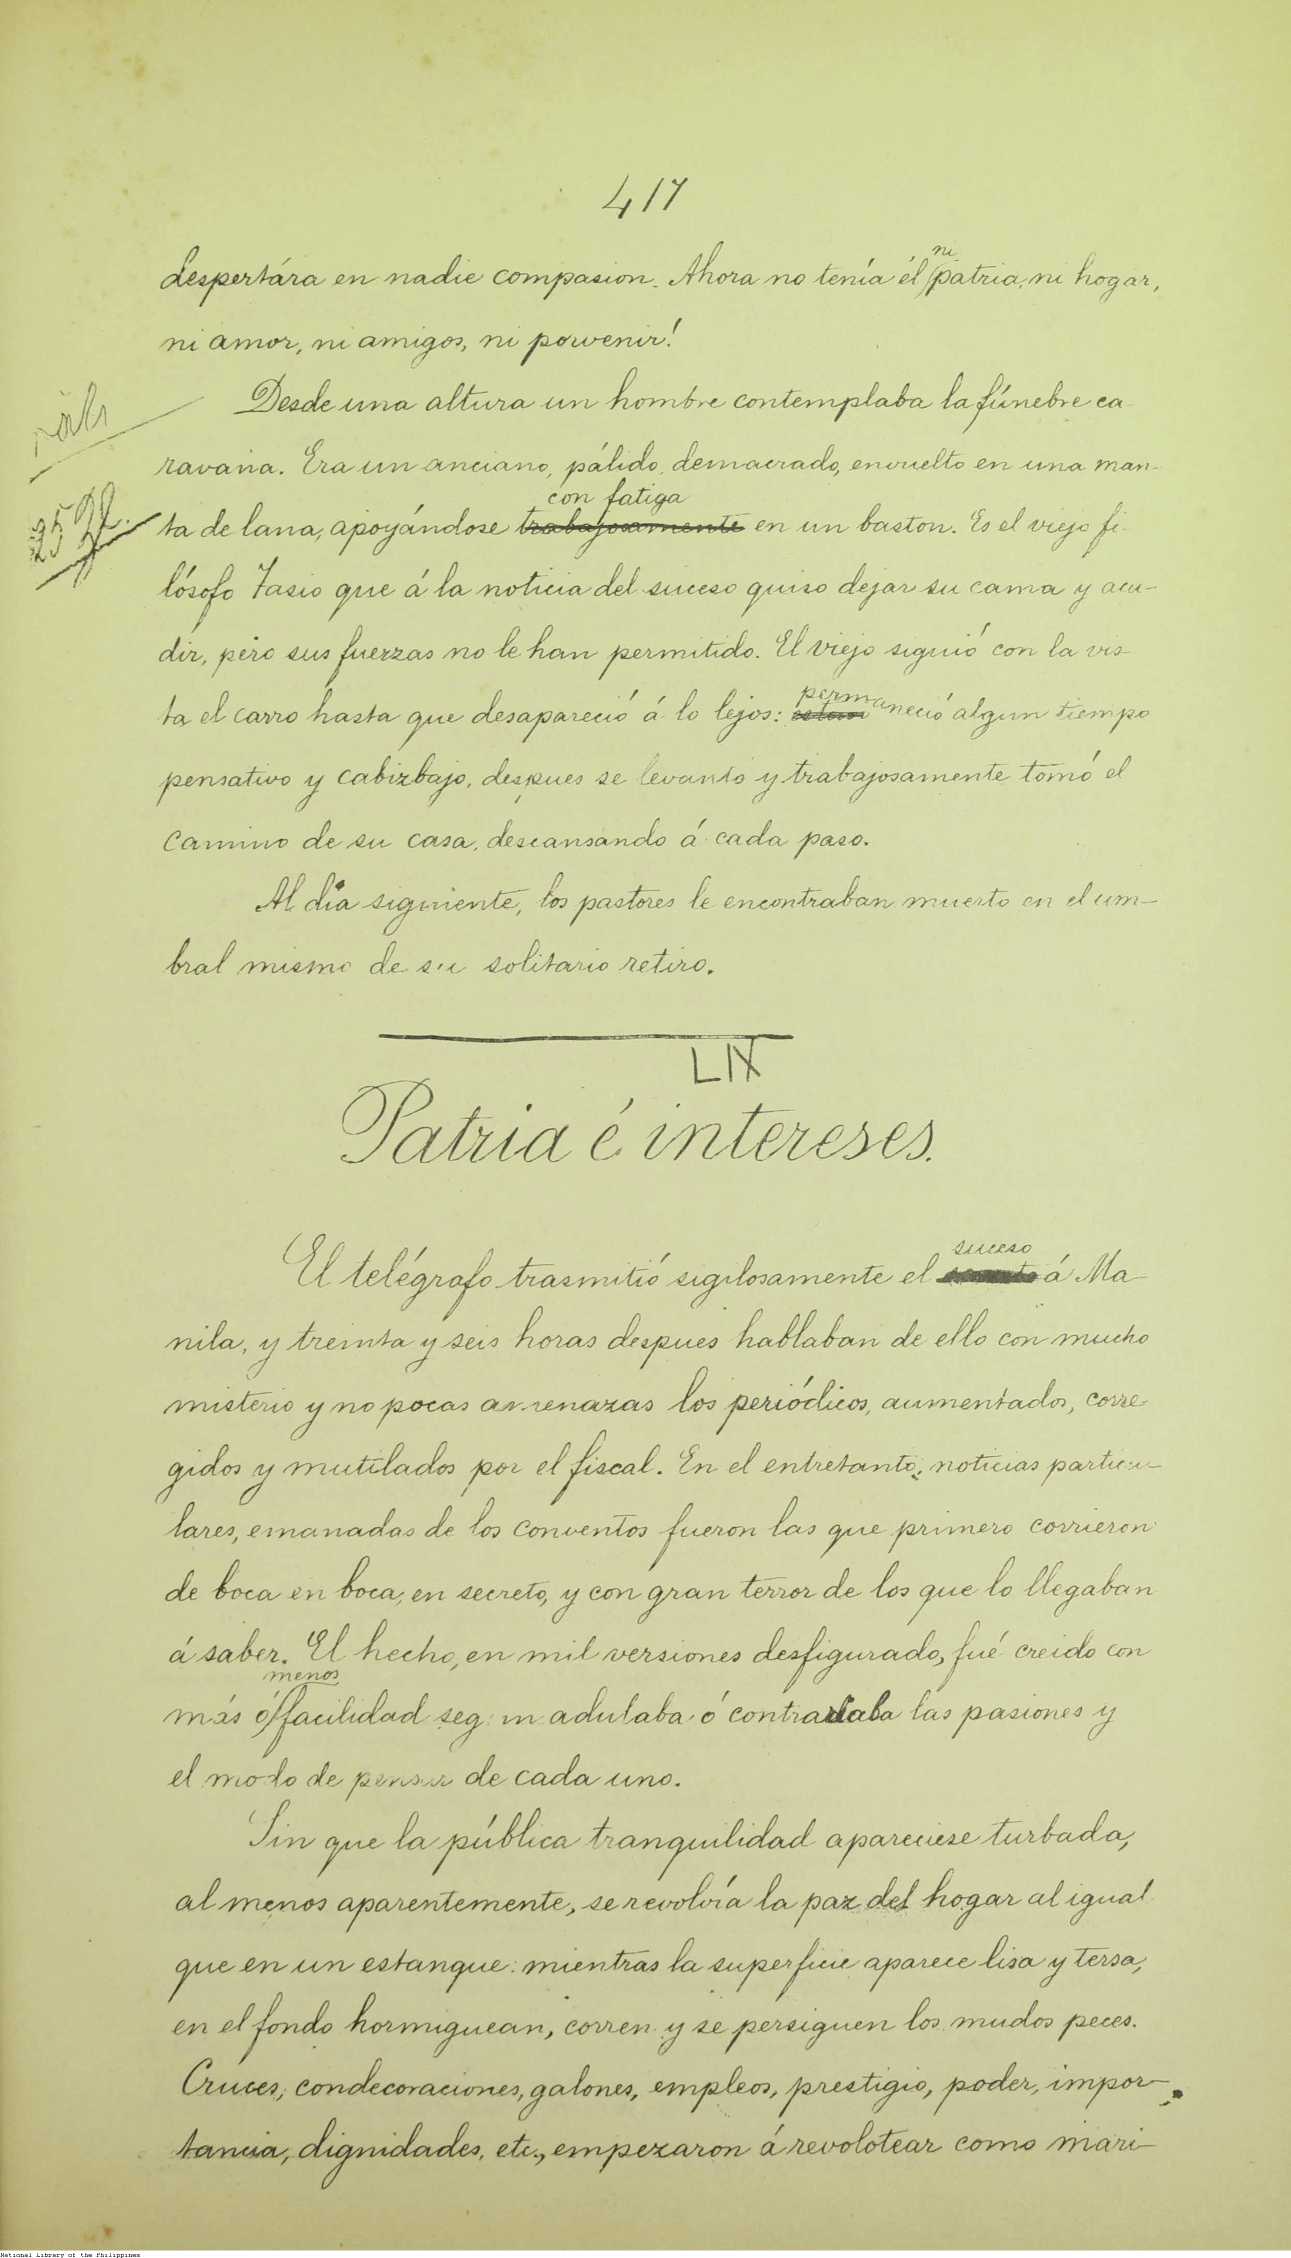 417
despertára en nadie compasion. Ahora no tenía él ni patria, ni hogar,
ni amor, ni amigos, ni porvenir!
Desde una altura un hombre contemplaba la fúnebre ca-
ravana. Era un anciano, pálido, demacrado, envuelto en una man-
con fatiga
ta de lana, apoyándose trabajosamente en un baston. Es el viejo fi-
lósofo Tasio que á la noticia del suceso quiso dejar su cama y acu-
dir, pero sus fuerzas no le han permitido. El viejo siguió con la vis-
ta el carro hasta que desapareció á lo lejos: permaneció algun tiempo
pensativo y cabizbajo, despues se levantó y trabajosamente tomó el
camino de su casa, descansando á cada paso.
Al día siguiente, los pastores le encontraban muerto en el um-
bral mismo de su solitario retiro.
LIX
Patria é intereses.
El telégrafo trasmitió sigilosamente el suceso á Ma-
nila, y treinta y seis horas despues hablaban de ello con mucho
misterio y no pocas amenazas los periódicos, aumentados, corre-
gidos y mutilados por el fiscal. En el entretanto, noticias particu-
lares, emanadas de los conventos fueron las que primero corrieron
de boca en boca, en secreto, y con gran terror de los que lo llegaban
á saber. El hecho, en mil versiones desfigurado, fué creido con
más ó menos facilidad segun adulaba ó contrariaba las pasiones y
el modo de pensar de cada uno.
Sin que la pública tranquilidad apareciese turbada,
al menos aparentemente, se revolvía la paz del hogar al igual
que en un estanque: mientras la superficie aparece lisa y tersa,
en el fondo hormiguean, corren y se persiguen los mudos peces.
Cruces, condecoraciones, galones, empleos, prestigio, poder, impor-
tancia, dignidades, etc., empezaron á revolotear como mari-
National Library of the Philippines